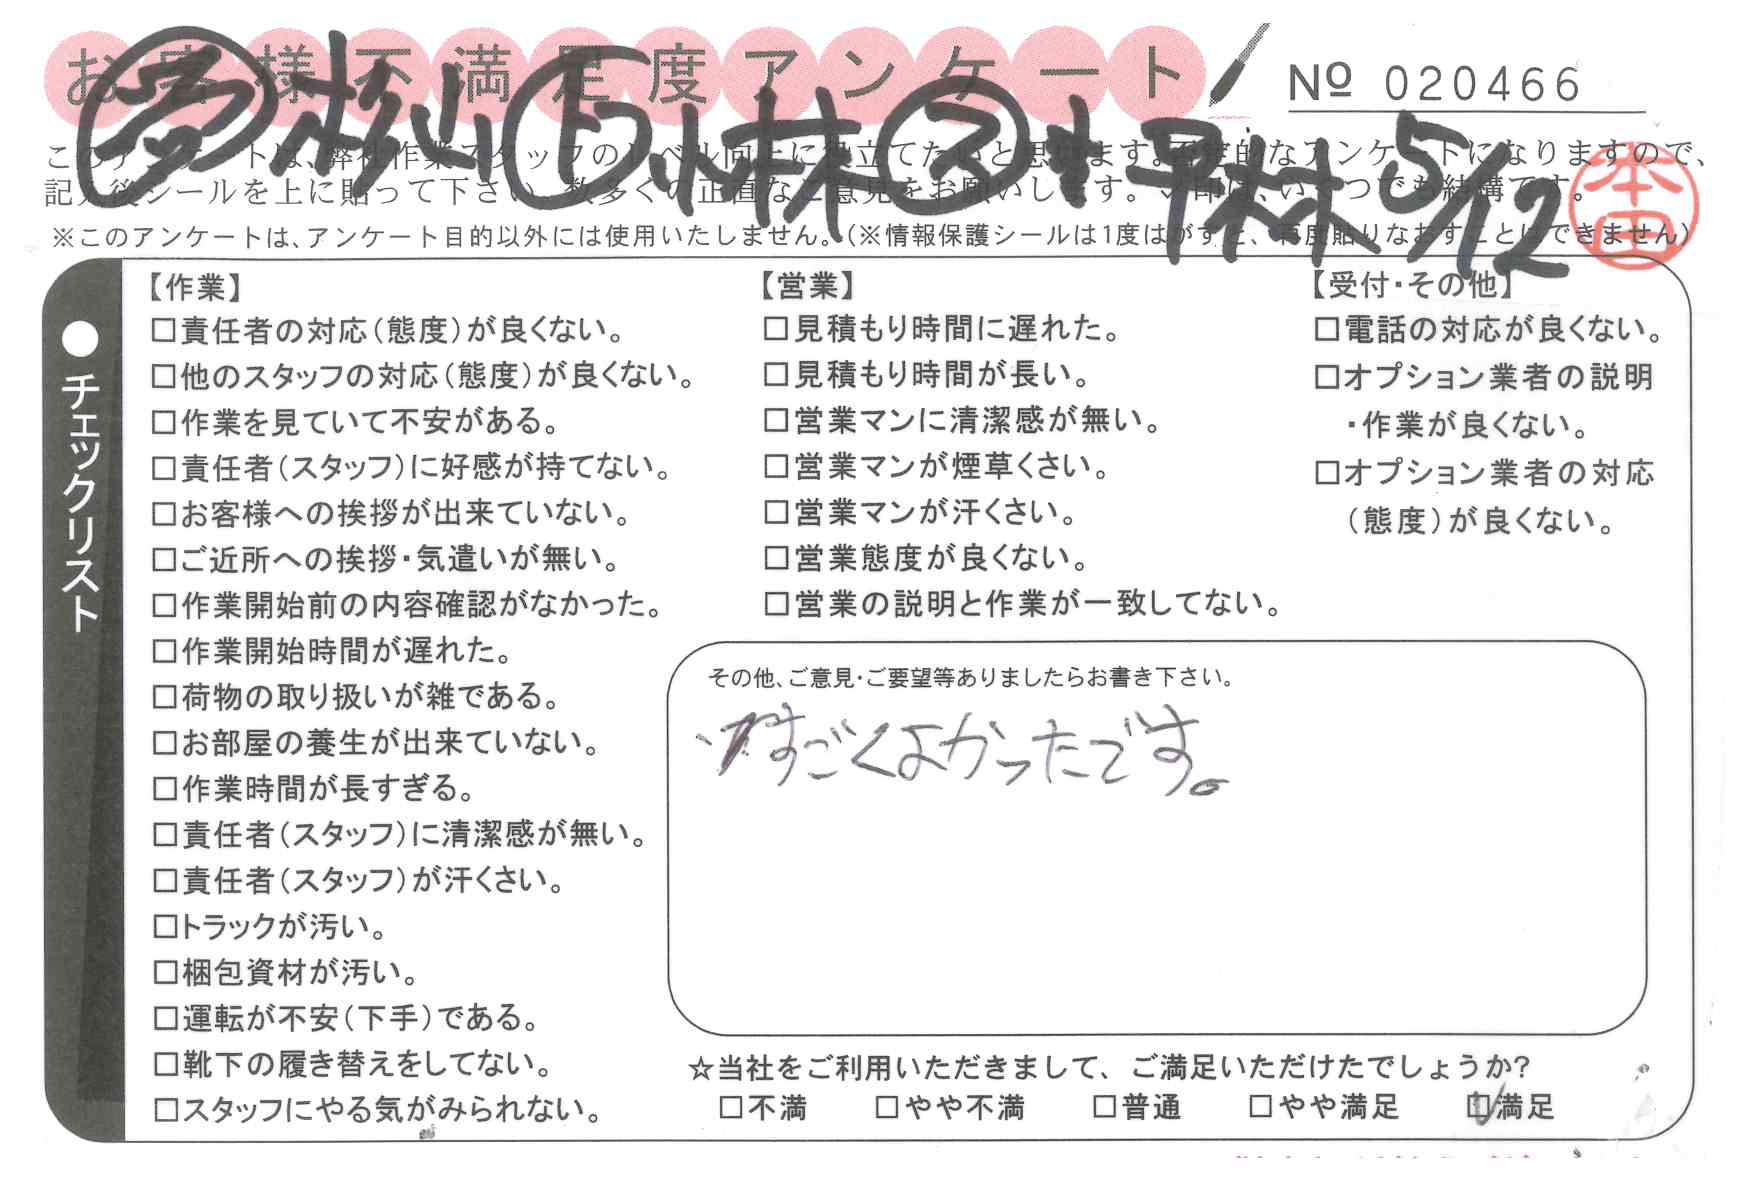 お客様不満足度アンケート
№ 020466
杉山 小林 早林 5/12
本田
このアンケートは、弊社作業スタッフのレベル向上に役立てたいと思います。不定的なアンケートになりますので、
記入後シールを上に貼って下さい。数多くの正直なご意見をお願いします。✓印は、いくつでも結構です。
※このアンケートは、アンケート目的以外には使用いたしません。(※情報保護シールは1度はがすと、再度貼りなおすことはできません)
●チェックリスト
【作業】
□責任者の対応(態度)が良くない。
□他のスタッフの対応(態度)が良くない。
□作業を見ていて不安がある。
□責任者(スタッフ)に好感が持てない。
□お客様への挨拶が出来ていない。
□ご近所への挨拶・気遣いが無い。
□作業開始前の内容確認がなかった。
□作業開始時間が遅れた。
□荷物の取り扱いが雑である。
□お部屋の養生が出来ていない。
□作業時間が長すぎる。
□責任者(スタッフ)に清潔感が無い。
□責任者(スタッフ)が汗くさい。
□トラックが汚い。
□梱包資材が汚い。
□運転が不安(下手)である。
□靴下の履き替えをしてない。
□スタッフにやる気がみられない。
【営業】
□見積もり時間に遅れた。
□見積もり時間が長い。
□営業マンに清潔感が無い。
□営業マンが煙草くさい。
□営業マンが汗くさい。
□営業態度が良くない。
□営業の説明と作業が一致してない。
【受付・その他】
□電話の対応が良くない。
□オプション業者の説明
・作業が良くない。
□オプション業者の対応
(態度)が良くない。
その他、ご意見・ご要望等ありましたらお書き下さい。
すごくよかったです。
☆当社をご利用いただきまして、ご満足いただけたでしょうか?
□不満 □やや不満 □普通 □やや満足 ☑満足